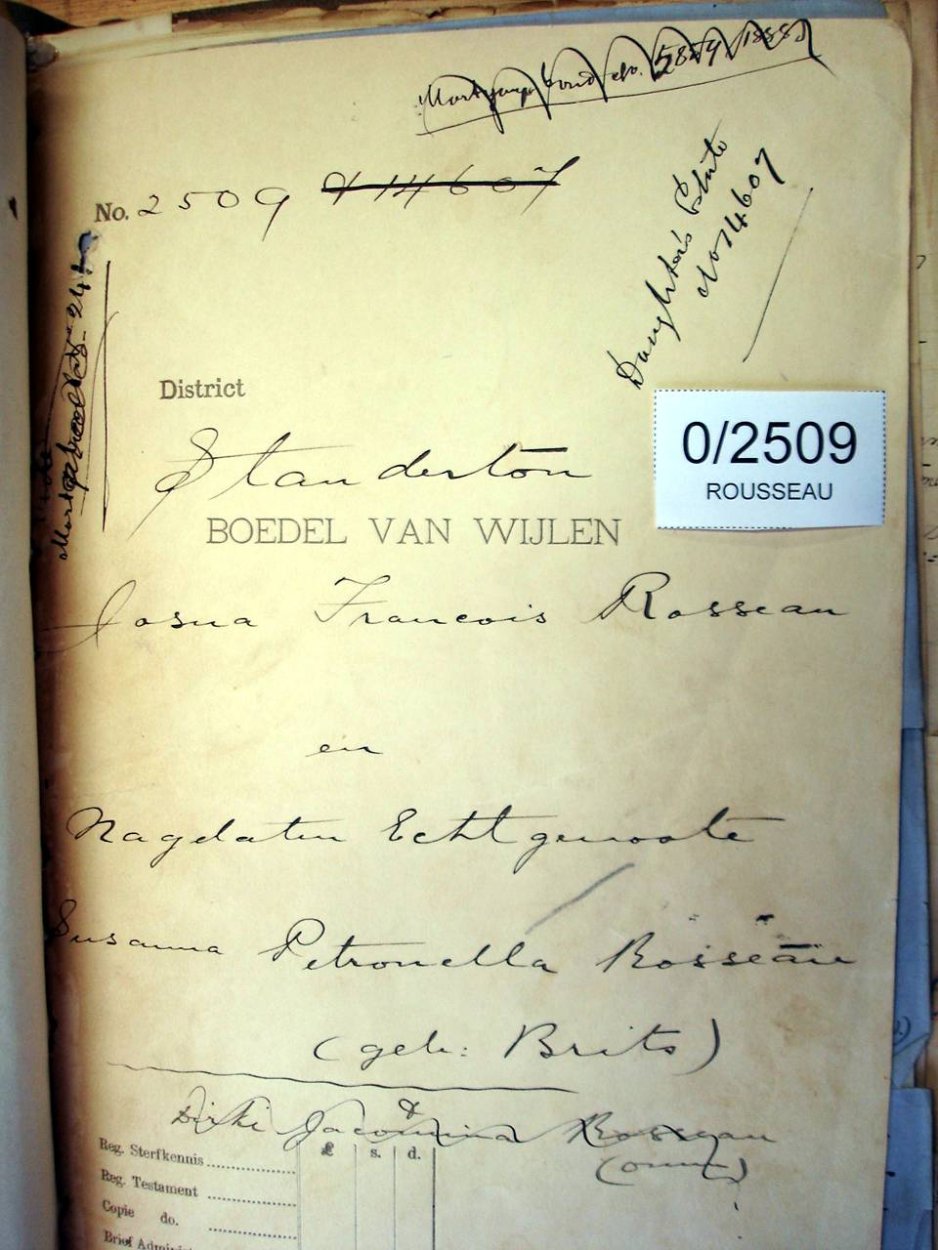 Mortgage bond No. 5849/1888
No. 2509 & 14607
Daughter's Estate
No 14607
District
Standerton
0/2509
ROUSSEAU
BOEDEL VAN WIJLEN
Josua Francois Rosseau
en
Nagelaten Echtgenoote
Susanna Petronella Rosseau
(geb: Brits)
&
Dirkie Jacomina Rosseau
£ s. d.
Reg. Sterfkennis
Reg. Testament
Copie do.
Brief Administ